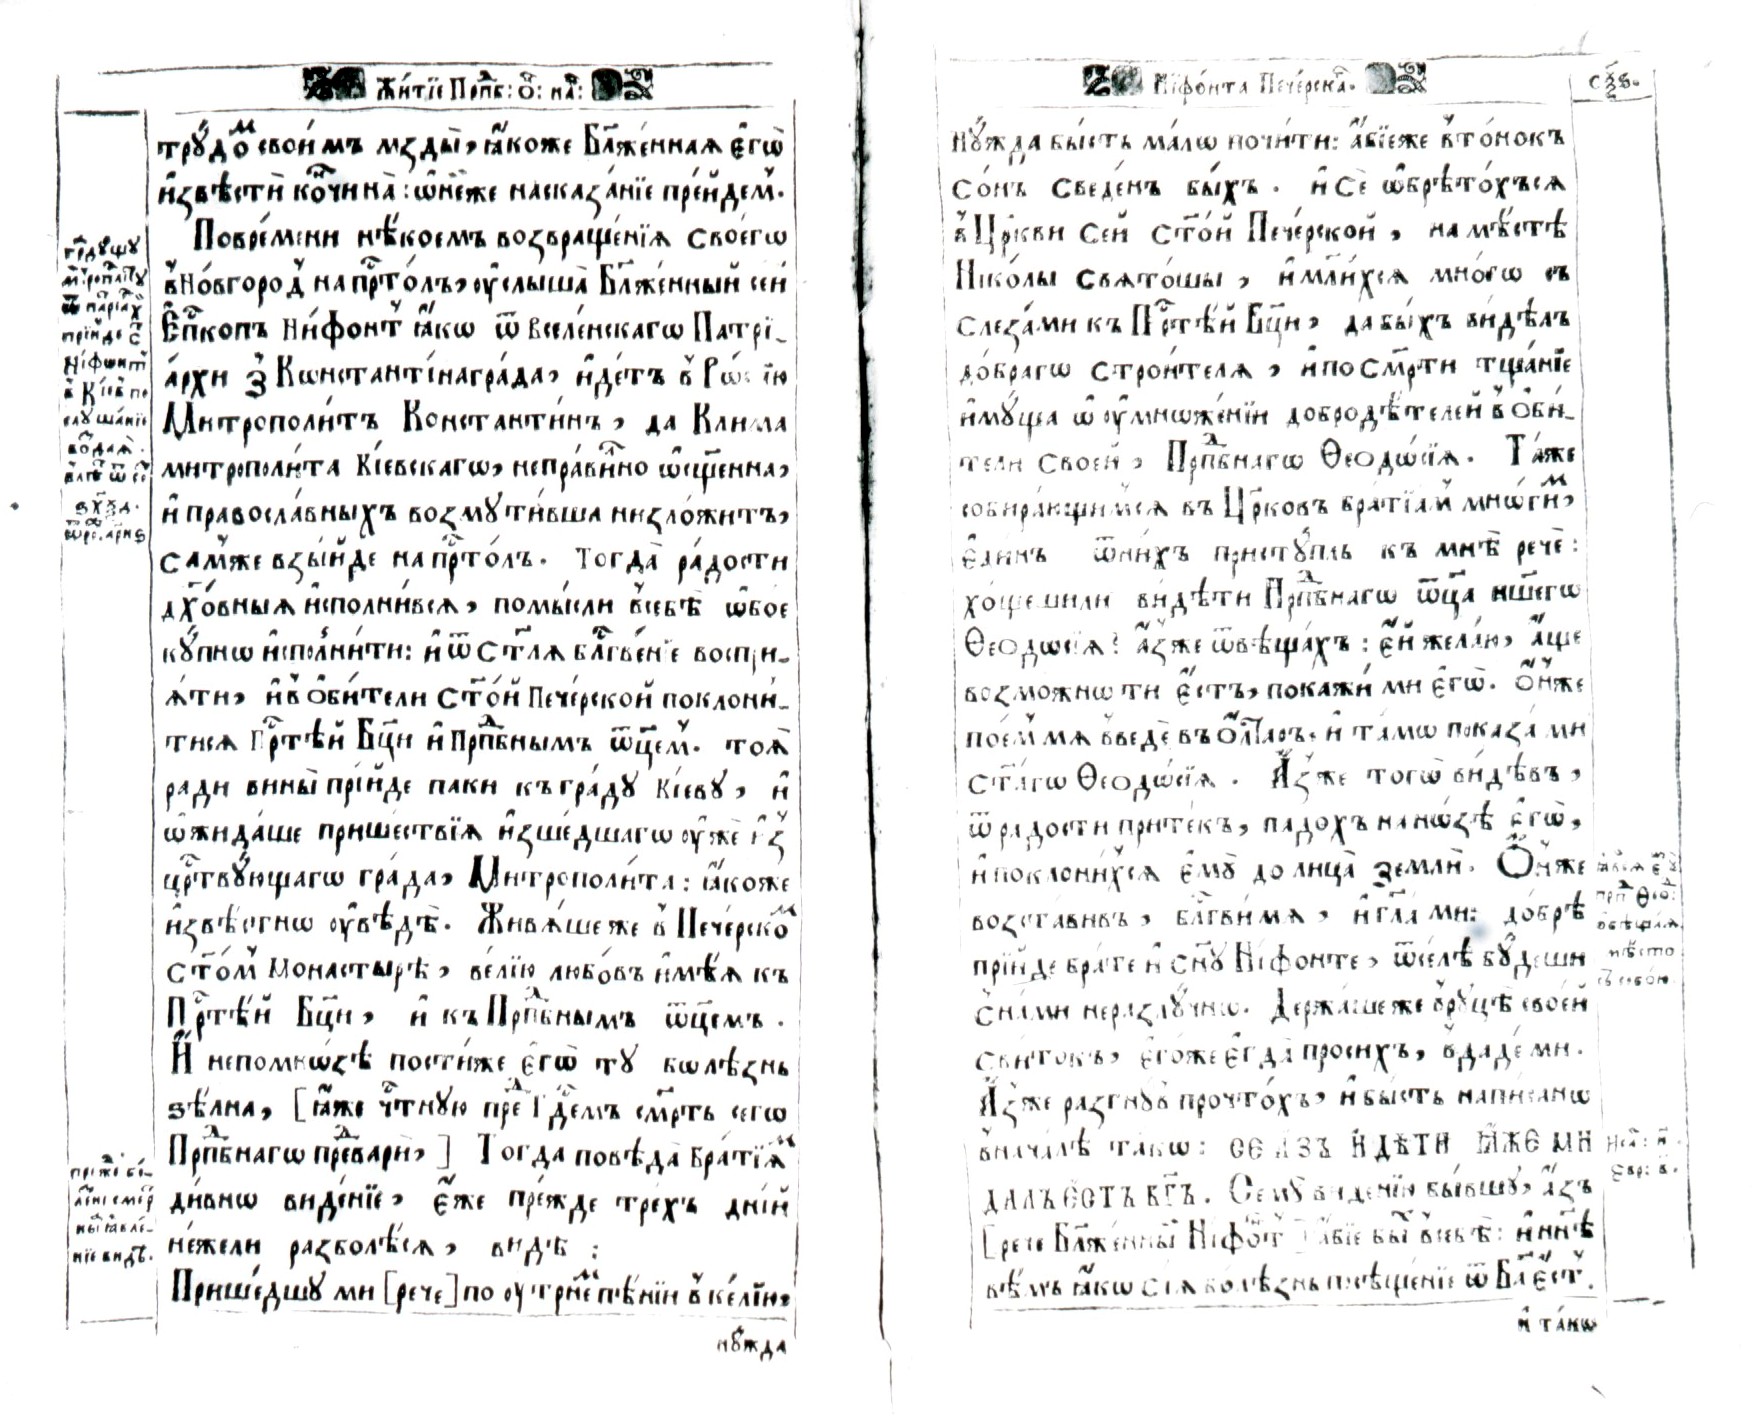 Житїе Прпⷣб: Ѻ҃: на́ш:
трꙋдѡ́ⷨ свои́мъ мзды̀, ꙗ҆́коже Бл҃же́ннаѧ є҆гѡ̀
и҆звѣстѝ кончина̀: ѡ҆не́йже насказа́нїе пре́йдем̾.
Повре́мени нѣ́коемъ возвраще́нїѧ своегѡ̀
в̾Но́вгород̾ напр҃то́лъ, ᲂу҆слы́ша Бл҃же́нный се́й
Є҆пⷭ҇копъ Ни́фонт̾ ꙗ҆́кѡ ѿ Вселе́нскагѡ Патрї-
а́рхи з̾ Кѡнстантї́награ́да, и҆де́тъ в̾ Рѡссі́ю
Митрополи́тъ Константи́нъ, да Кли́ма
митрополи́та Кі́евскагѡ, непра́вилно ѡ҆сщ҃е́нна,
и҆ правосла́вныхъ возмꙋти́вша низло́житъ,
са́м̾же взы́йде напр҃то́лъ. Тогда̀ ра́дости
дх҃о́вныѧ и҆спо́лнивсѧ, помы́сли в̾себѣ̀ ѡ҆бое
кꙋ́пнѡ и҆спо́лнити: и҆ ѿ ст҃лѧ блгⷭ҇ве́нїе воспрї-
ѧ́ти, и҆ в̾ Ѻ҆би́тели ст҃о́й Пече́рской поклони́-
тисѧ Пр҃тѣ́й Бц҃и и҆ Прпⷣбнымъ Ѿц҃ем̾. тоѧ̀
ради вины̀ прїи́де паки къ гра́дꙋ Кі́евꙋ, и҆
ѡ҆жида́ше прише́ствїѧ и҆зше́дшагѡ ᲂу҆жѐ и҆з̾
цр҃твꙋ́ющагѡ гра́да, Митрополи́та: ꙗ҆́коже
и҆звѣ́стнѡ ᲂу҆вѣ́дѣ. Живѧ́шеже в̾ Пече́рскоⷨ
ст҃ом̾ Монастырѣ̀, ве́лїю любо́въ и҆мѣ́ѧ къ
Пр҃тѣ́й Бц҃и, и҆ къ Прпⷣбнымъ Ѿц҃емъ.
И҆ непомно́зѣ пости́же є҆гѡ̀ тꙋ болѣ́знь
ѕѣ́лна, [ꙗ҆́же чⷭ҇тнꙋю преⷣ Гдⷭ҇емъ см҃рть сегѡ̀
Прпⷣбнагѡ преⷣвари̾,] Тогда повѣ́да бра́тїѧⷨ
ди́внѡ виде́нїе, є҆́же пре́жде тре́хъ дні́й
не́жели разболѣ́сѧ, видѣ̀:
Прише́дшꙋ ми [рече] по ᲂу҆́трнеⷨ пѣ́нїи в̾ ке́лїю,
нꙋ́жда
грѧдꙋ́щꙋ
митрополи́тꙋ
ѿ патрїа́рх̾
прїи́де с҃
Ні́фонт̾
в̾ Кі́ев̾ по
слꙋша́нїе
во́даѧ̀.
Нїфо́нта Пече́рскаⷢ.
сѯ҃ѕ.
нꙋ́жда бы́сть ма́лѡ почи́ти: а҆́бїеже в̾то́нокъ
со́нъ сведе́нъ бы́хъ. и҆ сѐ ѡ҆брѣто́хъсѧ
в̾ Цр҃кви сей ст҃о́й Пече́рской, на мѣ́стѣ
Нїко́лы Свѧто́шы, и҆ мл҃и́хсѧ мно́гѡ съ
слеза́ми къ Пр҃тѣ́й Бц҃и, дабы́хъ ви́дѣлъ
до́брагѡ строи́телѧ, и҆ посм҃рти тща́нїе
и҆мꙋ́ща ѡ҆ ᲂу҆множе́нїи добродѣ́телей в̾ Ѻ҆би́-
тели своей, Прпⷣбнагѡ Ѳеодѡ́сїѧ. Та́же
собира́ющимсѧ въ Цр҃ковъ бра́тїѧм̾ мнѡ́гиⷨ,
є҆ди́нъ ѿни́хъ пристꙋ́пль къ мнѣ̀ рече̾:
хо́щешили ви́дѣти Прпⷣбнагѡ Ѿц҃а нш҃егѡ
Ѳеодѡ́сїѧ? а҆́зже ѿвѣща́хъ: є҆́й жела́ю, а҆́ще
возмо́жнѡти є҆́стъ, покажи́ ми є҆гѡ̀. Ѻ҆́н̾же
пое́м̾ мѧ в̾веде̾ въ Ѻ҆лта́рь, и҆ та́мѡ показа́ ми
ст҃а́гѡ Ѳеодѡ́сїѧ. А҆́з̾же тогѡ̀ ви́дѣвъ,
ѿ ра́дости прите́къ, падо́хъ на но́зѣ є҆гѡ̀,
и҆ поклони́хсѧ є҆мꙋ̀ до лица̀ землѝ. Ѻ҆́н̾же
возста́вивъ, бл҃гви́мѧ, и҆ гл҃а ми: до́брѣ
прїи́де бра́те и҆ сн҃ꙋ Ні́фонте, ѿсе́лѣ бꙋ́деши
с̾на́ми неразлꙋ́чнѡ. Держа́шеже в̾рꙋцѣ̀ свое́й
сви́токъ, є҆го́же є҆гда̀ проси́хъ, в̾даде́ ми.
А҆́з̾же разгнꙋ́в̾ прочто́хъ, и҆ бы́сть напи́санѡ
в̾нача́лѣ та́кѡ: СЕ АЗЪ И ДѢТИ ꙖЖЕ МИ
ДАЛЪ ЄСТЪ БГ҃Ъ. Семꙋ̀ виде́нїю бы́вшꙋ, а҆́зъ
[рече Бл҃же́нный Ні́фонт̾] а҆́бїе бы́х̾ в̾себѣ̀: и҆ нн҃ѣ
вѣ́мъ ꙗ҆́кѡ сїѧ̀ болѣ́знь посѣще́нїе ѿ Бг҃а є҆́ст̾.
и҆ та́кѡ
мѣ́сто